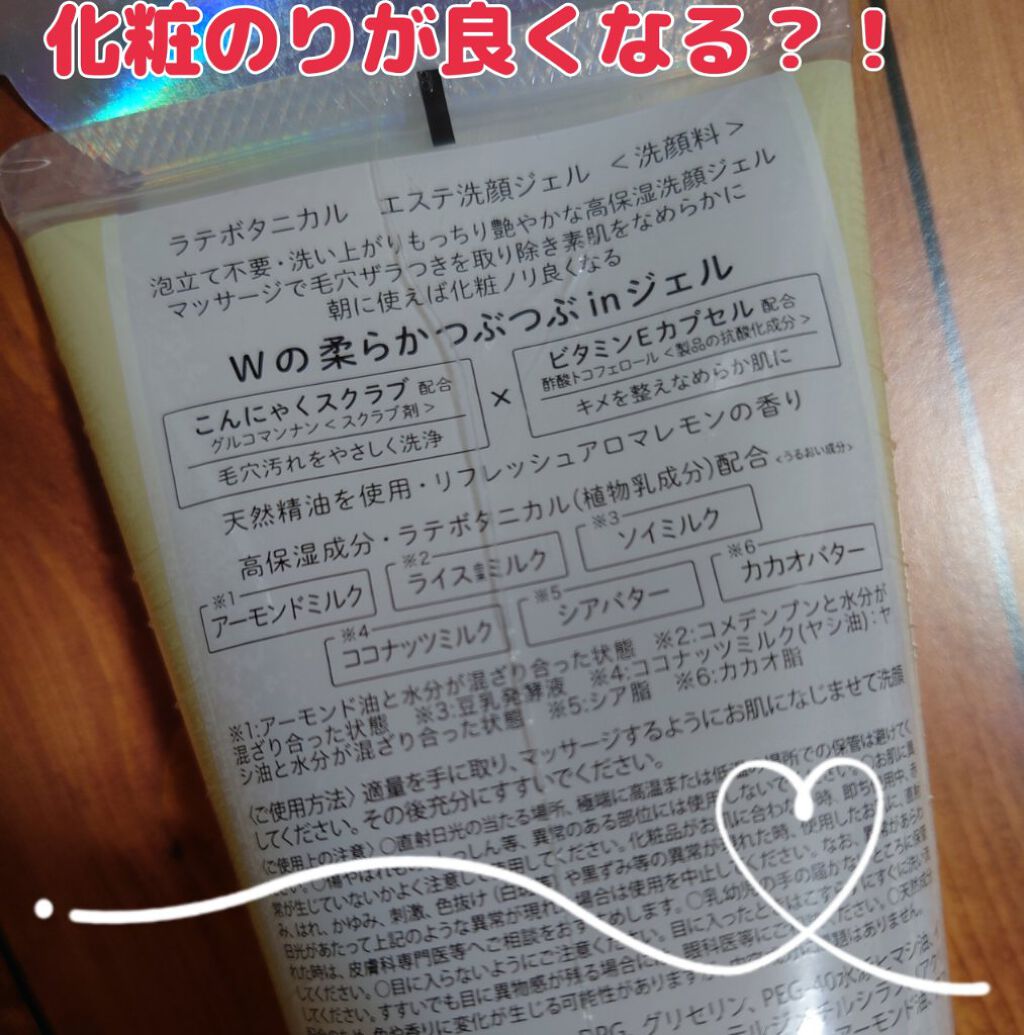 化粧のりが良くなる？！
ラテボタニカル エステ洗顔ジェル ＜洗顔料＞
泡立て不要・洗い上がりもっちり艶やかな高保湿洗顔ジェル
マッサージで毛穴ザラつきを取り除き素肌をなめらかに
朝に使えば化粧ノリ良くなる
Wの柔らかつぶつぶinジェル
こんにゃくスクラブ 配合
グルコマンナン＜スクラブ剤＞
毛穴汚れをやさしく洗浄
×
ビタミンEカプセル 配合
酢酸トコフェロール＜製品の抗酸化成分＞
キメを整えなめらか肌に
天然精油を使用・リフレッシュアロマレモンの香り
高保湿成分・ラテボタニカル(植物乳成分)配合＜うるおい成分＞
※1 アーモンドミルク
※2 ライスミルク
※3 ソイミルク
※4 ココナッツミルク
※5 シアバター
※6 カカオバター
※1:アーモンド油と水分が混ざり合った状態 ※2:コメデンプンと水分が
混ざり合った状態 ※3:豆乳発酵液 ※4:ココナッツミルク(ヤシ油):ヤ
シ油と水分が混ざり合った状態 ※5:シア脂 ※6:カカオ脂
〈ご使用方法〉適量を手に取り、マッサージするようにお肌になじませて洗顔
してください。その後充分にすすいでください。
〈ご使用上の注意〉○直射日光の当たる場所、極端に高温または低温の場所での保管は避けてく
しっしん等、異常のある部位には使用しないで
常が生じていないかよく注意し 使用してください。化粧品がお肌に合わな 時、即ち 用中、赤
み、はれ、かゆみ、刺激、色抜け(白斑等)や黒ずみ等の異常が現れた時、使用したお
日光があたって上記のような異常が現れ 場合は使用を中止し ください。なお、
れた時は、皮膚科専門医等へご相談をおすすめします。○乳幼児の手の届かな ところに保管
してください。○目に入らないようにご注意ください。目に入ったと はこすら すぐに洗い流
してください。すすいでも目に異物感が残る場合に 眼科医等にご ださい。○天然成
色や香りに変化が生じる可能性があります 題はありません。
PG、グリセリン、PEG-40水添ヒマシ油、